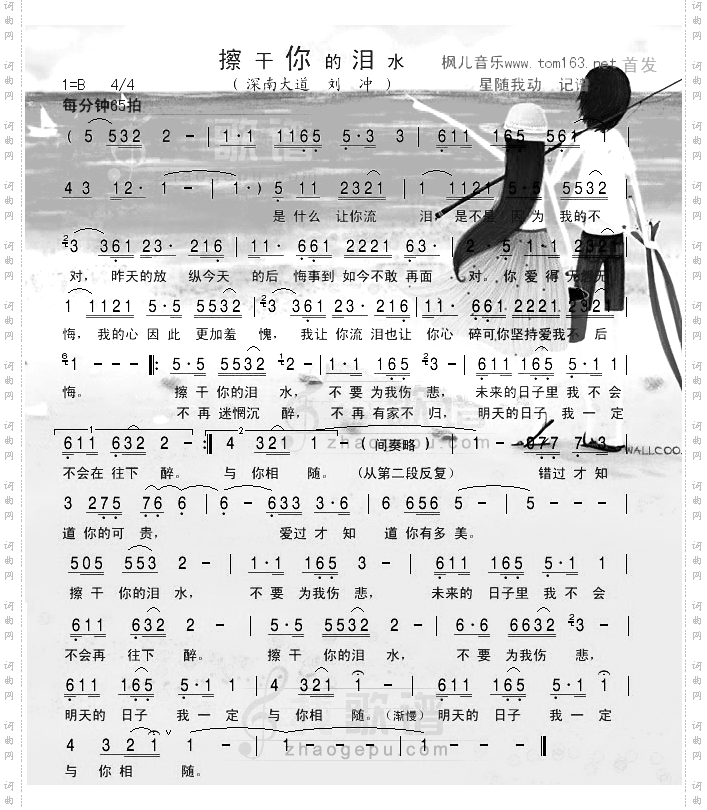 擦干你的泪水
枫儿音乐www.tom163.net首发
1=B 4/4 （深南大道 刘 冲） 星随我动 记谱
每分钟65拍
( 5 532 2 - | 1·1 1165 5·3 3 | 611 165 561 1 |
4 3 12· 1 - | 1·) 5 11 2321 | 1 1121 5·5 5532 |
是 什么 让你流 泪，是不是 因为 我的不
3 361 23· 216 | 11· 661 2221 63· | 2· 5 1·1 2321 |
对， 昨天的放 纵今天 的后 悔事到 如今不敢 再面 对。你 爱 得 无怨无
1 1121 5·5 5532 | 3 361 23· 216 | 11· 661 2221 2321 |
悔， 我的心 因此 更加羞 愧， 我让 你流 泪也让 你心 碎可你坚持爱我不 后
1 - - - |: 5·5 5532 2 - | 1·1 165 3 - | 611 165 5·1 1 |
悔。 擦干 你的泪 水， 不 要 为我伤 悲， 未来的 日子里 我 不 会
不 再 迷惘沉 醉， 不 再 有家不 归， 明天的 日子 我 一 定
1 2
611 632 2 - :| 4 321 1 - | (间奏略) | 1 - 077 7·3 |
WALLCOO.
不会在 往下 醉。 与 你相 随。 (从第二段反复) 错过 才 知
3 275 76 6 | 6 - 633 3·6 | 6 656 5 - | 5 - - - |
道 你的可 贵， 爱过 才 知 道 你有多 美。
505 553 2 - | 1·1 165 3 - | 611 165 5·1 1 |
擦 干 你的泪 水， 不 要 为我伤 悲， 未来的 日子里 我 不 会
611 632 2 - | 5·5 5532 2 - | 6·6 6632 3 - |
不会再 往下 醉。 擦 干 你的泪 水， 不 要 为我伤 悲，
611 165 5·1 1 | 4 321 1 - | 611 165 5·1 1 |
明天的 日子 我 一定 与 你相 随。(渐慢) 明天的 日子 我 一定
4 3 2 1 ∨ | 1 - - - | 1 - - - ‖
与 你 相 随。
歌谱
zhaogepu.com
词曲网